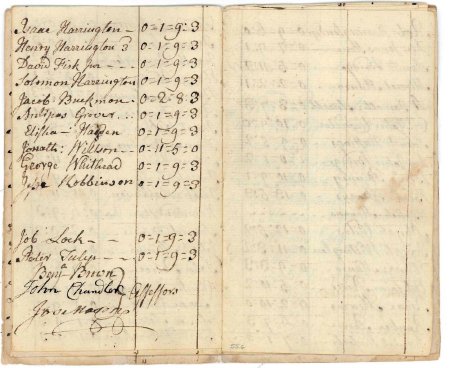 Isaac Harrington - 0=1=9=3
Henry Harrington 3 0=1=9=3
David Fisk Jur - . . . 0=1=9=3
Solomon Harrington 0=1=9=3
Jacob Buckmon . 0=2=8=3
Antipas Grover . . . 0=1=9=3
Elisha - Hadden 0=1=9=3
Jonath: Willson . . .
George Whithead 0=1=9=3
Robbinson 0=1=9=3
Job Lock - - 0=1=9=3
Peter Tulip - - 0=1=9=3
Benj Brown
John Chandler Assessors
556